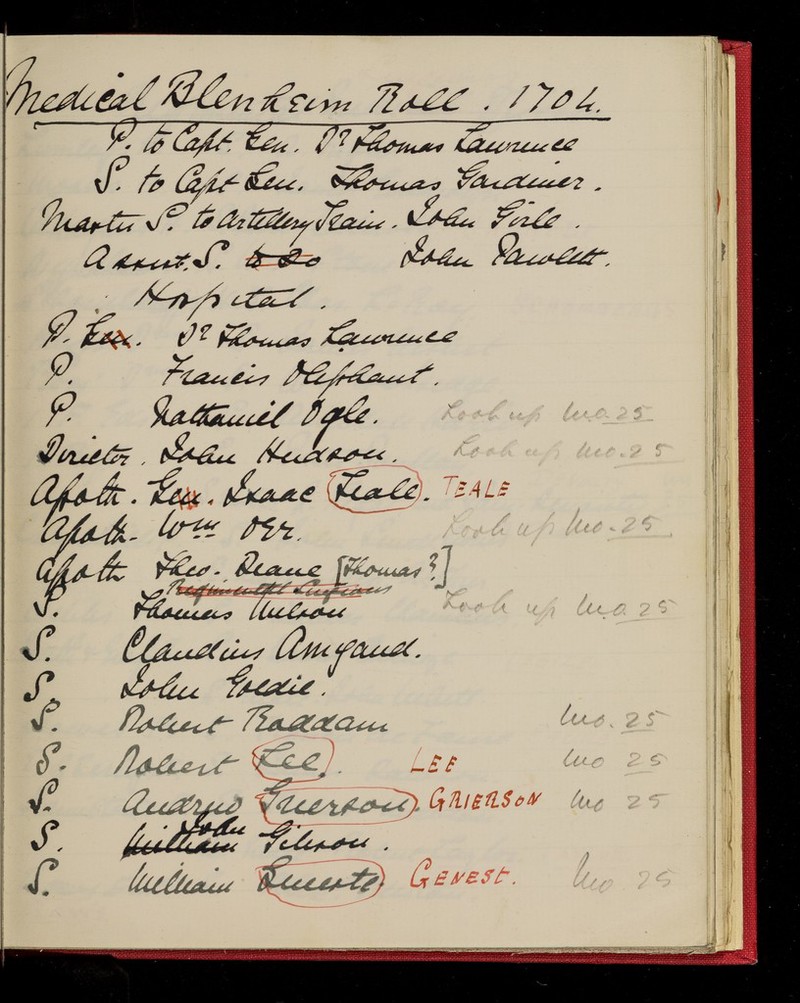 Medical Blenheim Roll. 1704.
P. to Capt. Gen. Dr Thomas Lawrence
S. to Capt Gen. Thomas Gardiner.
Master S. to Artillery Train. John Girle.
Assist. S. to Do John Pawlett.
Hospital.
P. Gen. Dr Thomas Lawrence
P. Francis Oliphant.
P. Nathaniel Ogle. Look up no. 25
Director. John Hudson. Look up no. 25
Apoth. Gen. Isaac Teale. TEALE
Apoth. Wm Orr. Look up no. 25
Apoth Theo. Deane [Thomas?]
Regimental Surgeons
S. Thomas Wilson Look up no. 25
S. Claudius Amyand.
S. John Goldie.
S. Robert Roddam no. 25
S. Robert Lee. LEE no 25
S. Andrew Grierson. GRIERSON no 25
S. William John Gibson.
S. William GENEST. no 25